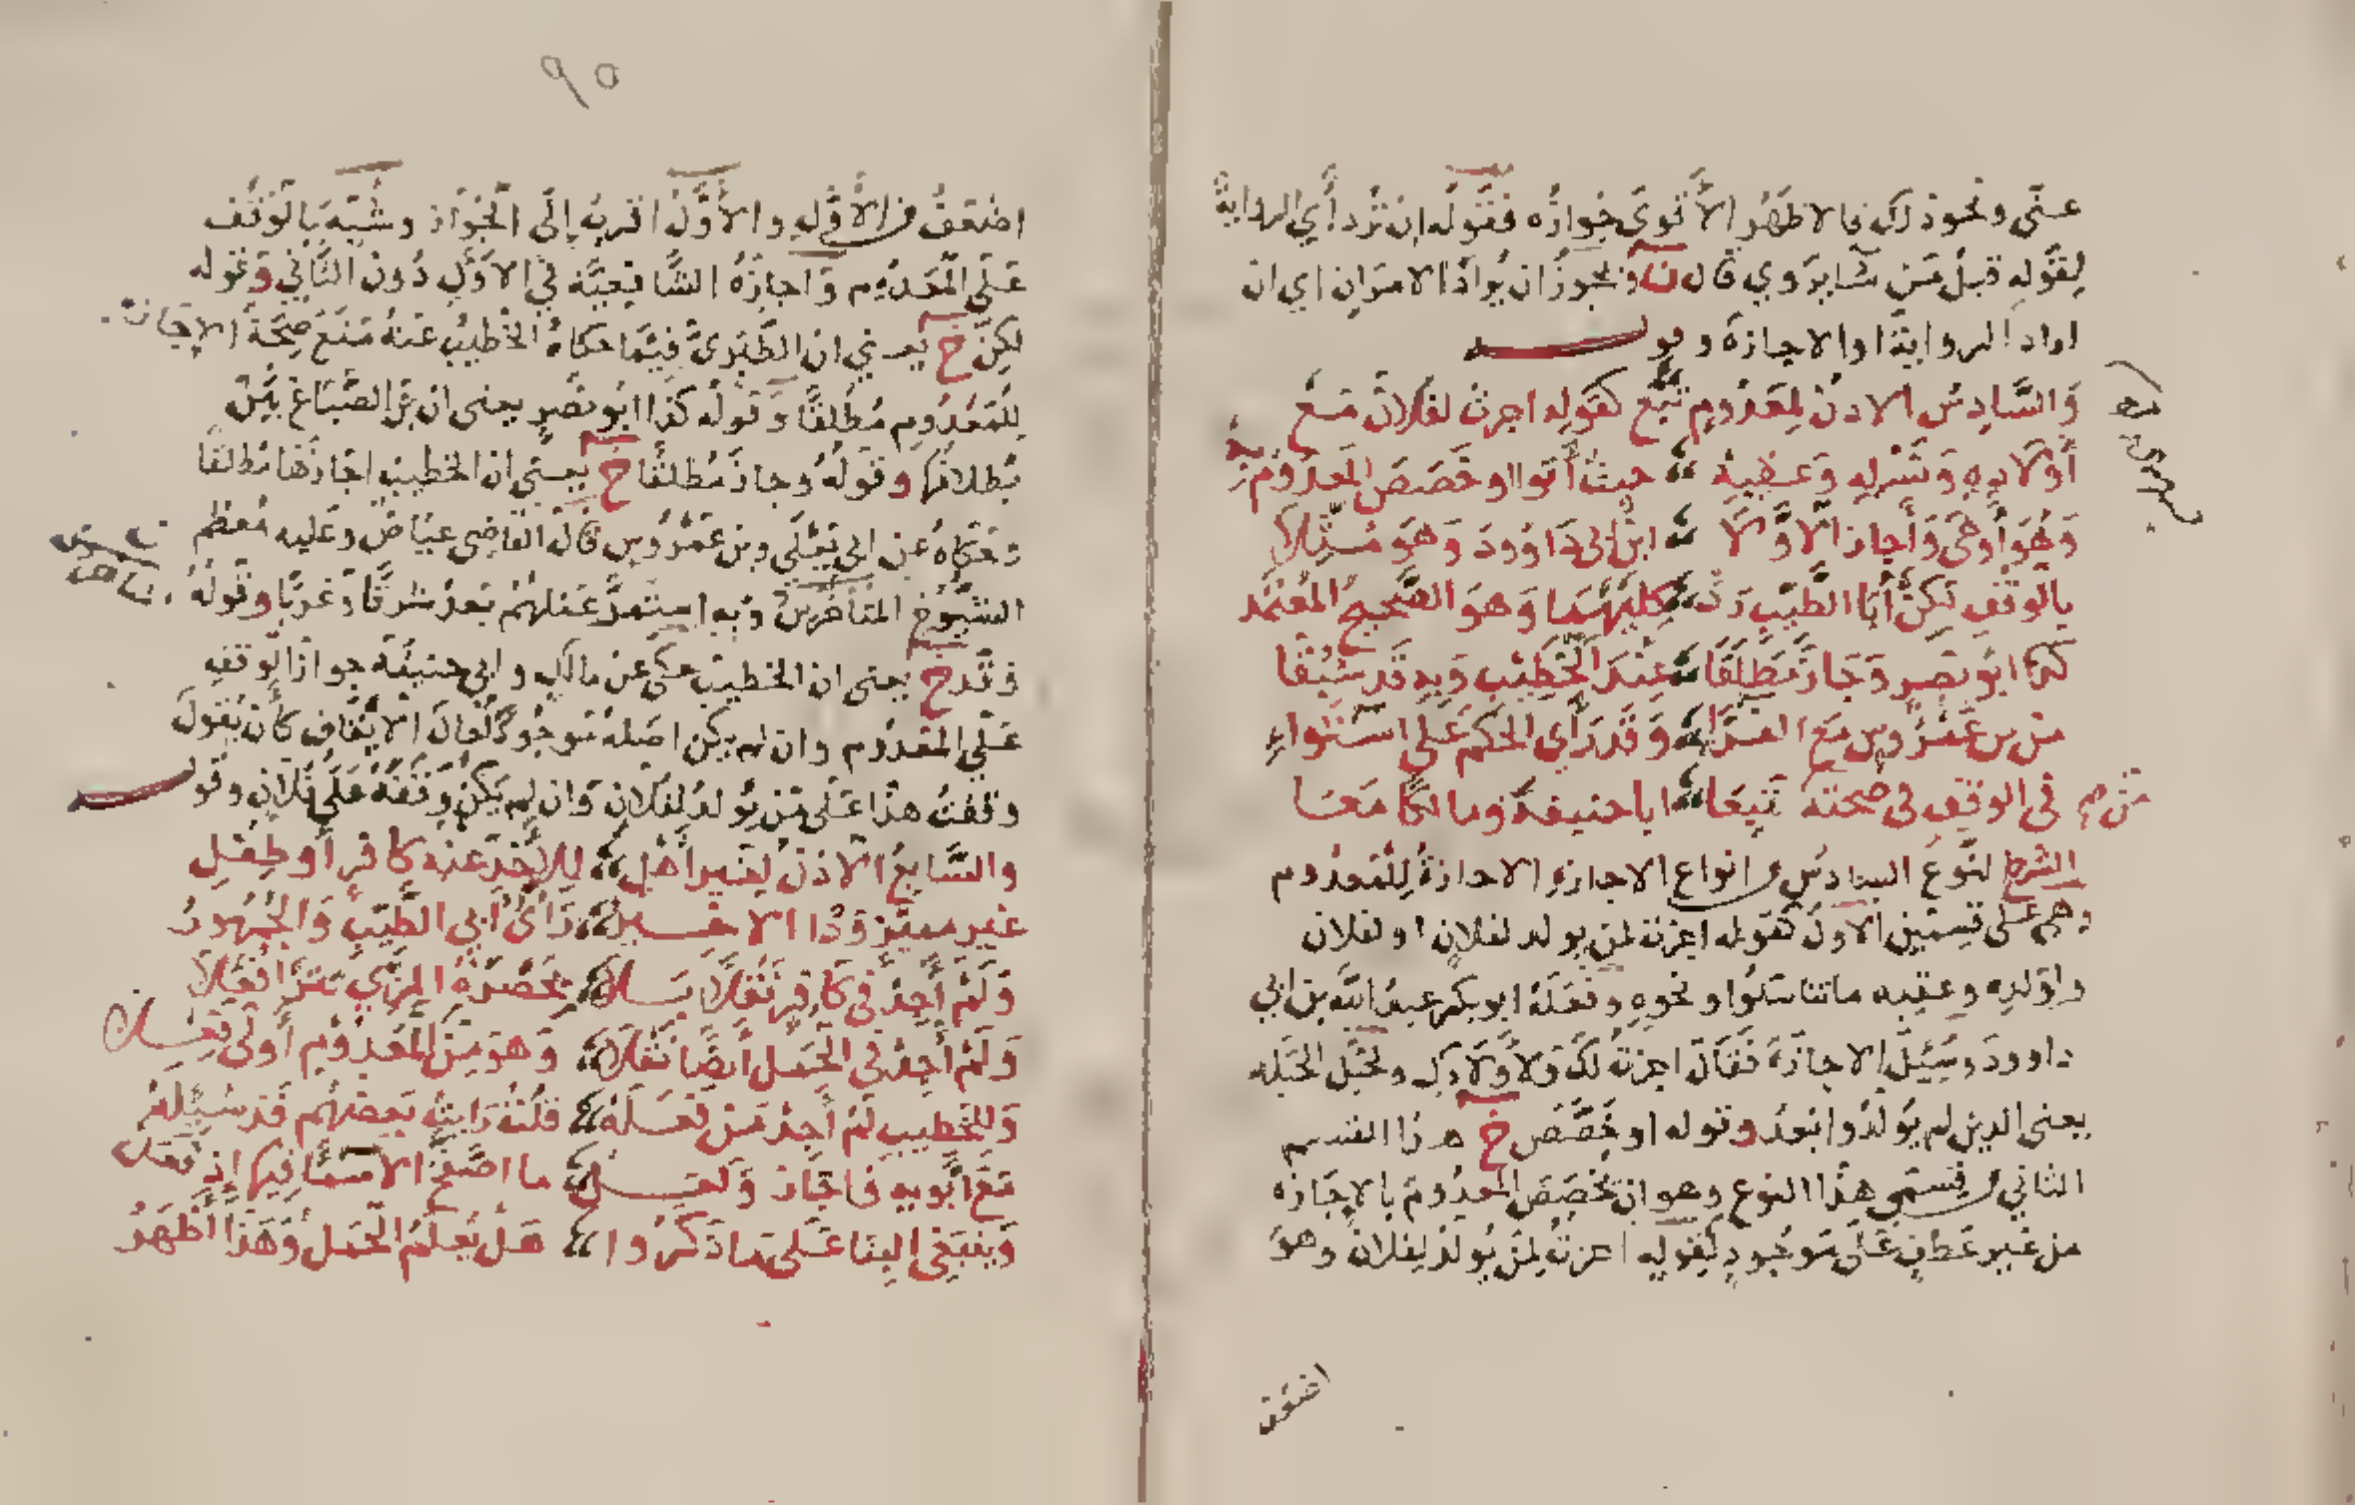 عني ونحو ذلك فالاظهر الأقوى جوازه فقوله ان ترد أي الرواية
لقوله قبل من شا يروي قال ن ويجوز ان يراد الامران اي ان
اراد الرواية او الاجازة وقولـــه
والسادس الاذن لمعدوم تبع كقوله اجزت لفلان مع
أولاده ونسله وعقبه حيث أتوا او خصص المعدوم به
وهو أوهى وأجاز الأولا ابن ابي داوود وهو مثلا
بالوقف لكن أبا الطيب رد كليهما وهو الصحيح المعتمد
كذا ابو نصر وجاز مطلقا عند الخطيب وبه قد سبقا
من بن عمروس مع الفرا وقد رأى الحكم على استواء
في الوقف في صحته تبعا ابا حنيفة ومالكا معا
الشرح النوع السادس من انواع الاجازة الاجازة للمعدوم
وهي على قسمين الاول كقوله اجزت لمن يولد لفلان او لفلان
واولاده وعقبه ما تناسلوا ونحوه وفعله ابو بكر عبد الله بن ابي
داوود وسئل الاجازة فقال اجزت لك ولاولادك ولحبل الحبله
يعني الذين لم يولدوا بعد وقوله او خصص خ هذا القسم
الثاني من قسمي هذا النوع وهو ان تخصص المعدوم بالاجازه
من غير عطف على موجود كقوله اجزت لمن يولد لفلان وهو
اضعف
٩٥
اضعف من الاول والأول اقرب إلى الجواز وشبه بالوقف
على المعدوم واجازه الشافعية في الاول دون الثاني وقوله
لكن خ يعني ان الطبري فيما حكاه الخطيب عنه منع صحة الاجازة
للمعدوم مطلقا وقوله كذا ابو نصر يعنى ان بن الصباغ بين
بطلانها وقوله وجاز مطلقا خ يعني ان الخطيب اجازها مطلقا
وحكاه عن ابي يعلى وبن عمروس قال القاضي عياض وعليه معظم
الشيوخ المتأخرين وبه استمر عملهم بعد شرقا وغربا وقوله
وقد خ يعني ان الخطيب حكى عن مالك وابي حنيفة جواز الوقف
على المعدوم وان لم يكن اصله موجودا حال الايقاف كأن يقول
وقفت هذا على من يولد لفلان وان لم يكن وقفه على فلان وقولـــه
والسابع الاذن لغير أهل للأخذ عنه كافر أو طفل
غير مميز وذا الاخير رأى أبي الطيب والجمهور
ولم أجد في كافر نقلا بلى بحضرة المزي تترا فعلا
ولم أجد في الحمل أيضا نقلا وهو من المعدوم أولى فعلا
وللخطيب لم أجد من فعله قلت رايت بعضهم قد سئله
مع أبويه فاجاز ولعل ما اصفح الاسما فيها إذ فعل
وينبغي البنا على ما ذكروا هل يعلم الحمل وهذا أظهر